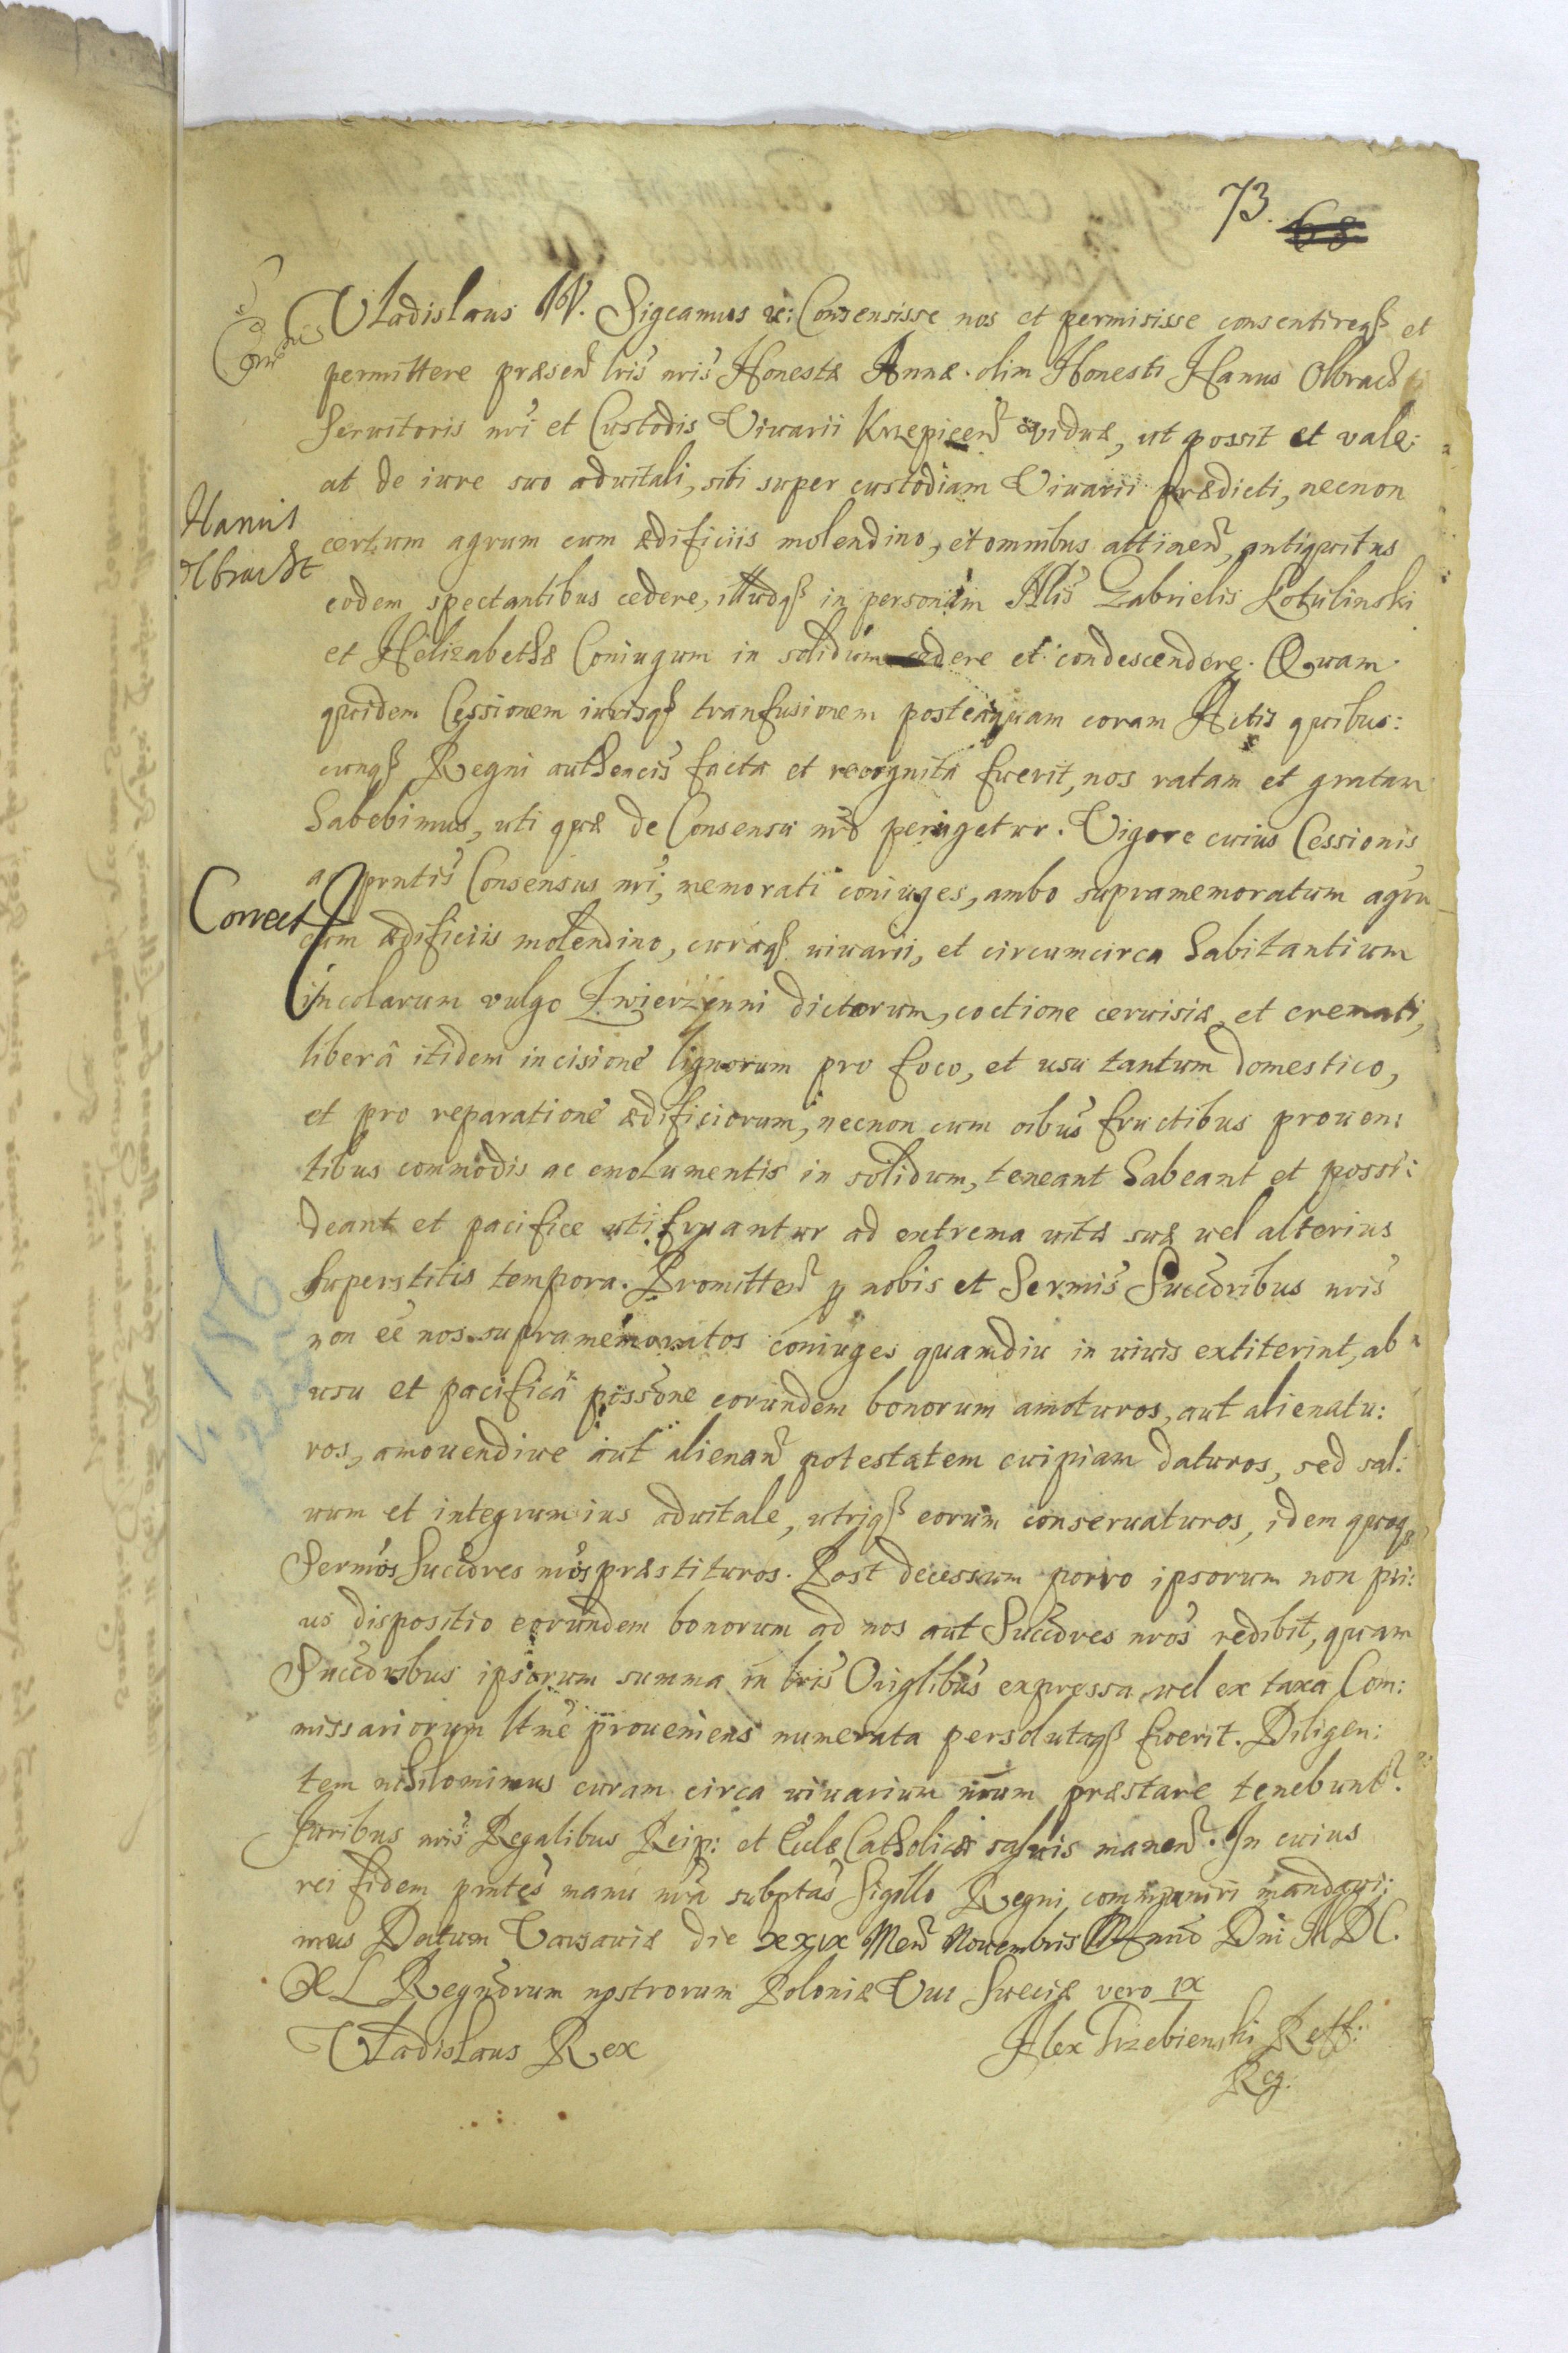 73. 68
Vladislaus IV. Sigcamus &: Consensisse nos et permisisse consentireqȝ et
permittere præsen lris nris Honestæ Annæ olim Honesti Hanus Olbracht
Seruitoris nri et Custodis Viuarii Krzepicen viduæ, ut possit et vale:
at de iure suo aduitali, sibi super custodiam Viuarii prædicti, necnon
Hanus
Olbracht
certum agrum cum ædificiis molendino, et omnibus attinen, antiquitus
eodem spectantibus cedere, illudqȝ in personam Nlis Gabrielis Kotulinski
et Helizabethæ Coniugum in solidum cedere et condescendere. Quam
quidem Cessionem iurisqȝ tranfusionem posteaquam coram Actis quibus:
cunqȝ Regni authencis facta et recognita fuerit, nos ratam et gratam
habebimus, uti quæ de Consensu nro peragetur. Vigore cuius Cessionis
ac prntis Consensus nri, memorati coniuges, ambo supramemoratum agru
Correct
cum ædificiis molendino, curaqȝ uiuarii, et circumcirca habitantium
incolarum vulgo Zwierzynni dictorum, coctione ceruisiæ, et cremati,
liberâ itidem incisione lignorum pro foco, et usu tantum domestico,
et pro reparatione ædificiorum, necnon cum oibus fructibus prouen:
tibus commodis ac emolumentis in solidum, teneant habeant et possi:
deant et pacifice uti fruantur ad extrema uitæ suæ uel alterius
superstitis tempora. Promitten p nobis et Sermis Succoribus nris
non ee nos supramemoratos coniuges quamdiu in uiuis extiterint, ab
usu et pacificâ possone eorundem bonorum amoturos, aut alienatu:
ros, amouendiue aut alienan potestatem cuipiam daturos, sed sal:
uum et integrum ius aduitale, utriqȝ eorum conseruaturos, idem quoqȝ
Sermos Succores nros præstituros. Post decessum porro ipsorum non pri:
us dispositio eorundem bonorum ad nos aut Succores nros redibit, quam
Succoribus ipsorum summa in lris Origlibus expressa, uel ex taxa Com:
missariorum ltme proueniens numerata persolutaqȝ fuerit. Diligen:
tem nihilominus curam circa uiuarium nrum præstare tenebunt.
Juribus nris Regalibus Reip: et Eclæ Catholicæ saluis manen. In cuius
rei fidem prntes manu nra subptas Sigillo Regni communiri mandaui:
mus Datum Varsauiæ die xxix Men Nouembris Anno Dni MDC.
XL Regnorum nostrorum Poloniæ VIII Sueciæ vero IX
Vladislaus Rex
Alex Trzebienski Reff:
Reg.